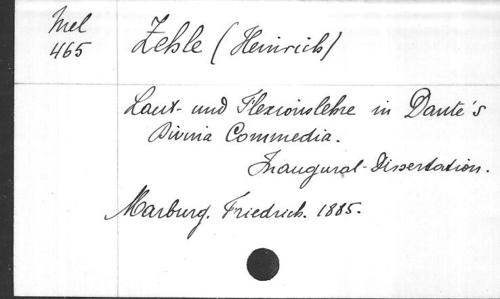 Mel
465
Zehle (Heinrich)
Laut- und Flexionslehre in Dante's
Divina Commedia.
Inaugural-Dissertation.
Marburg. Friedrich. 1885.